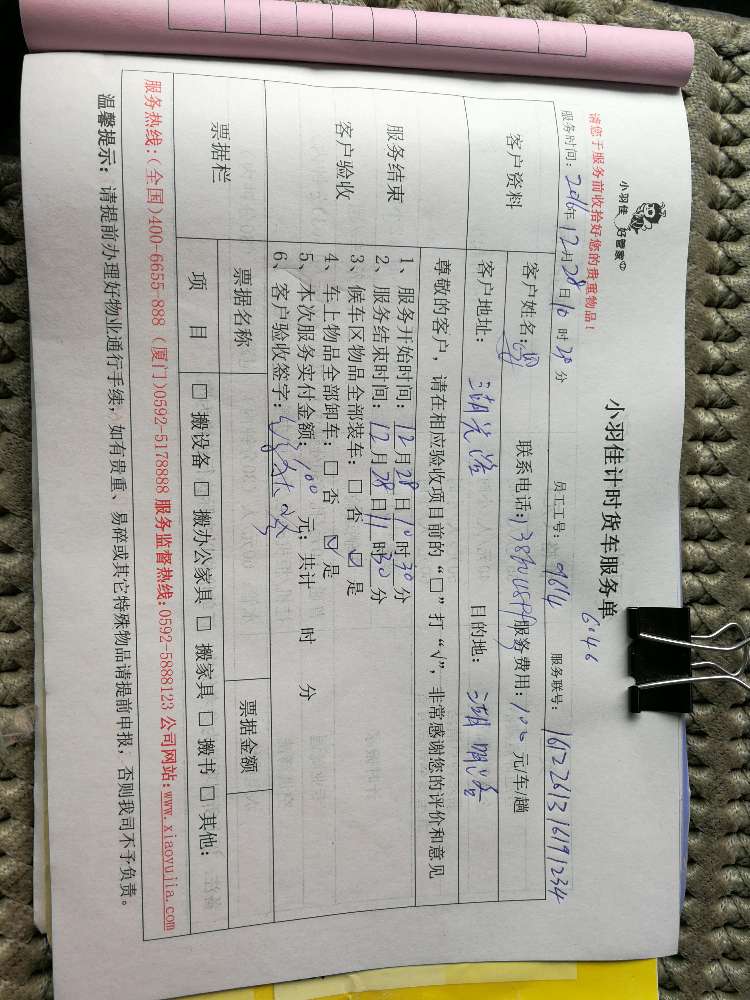 小羽佳 好管家
小羽佳计时货车服务单
6:46
请您于服务前收拾好您的贵重物品！
服务时间：2016年12月28日10时30分 员工工号：9814 服务联号：
客户资料
客户姓名： 联系电话： 服务费用：100元/车/趟
客户地址： 湖光路 目的地： 湖明路
尊敬的客户，请在相应验收项目前的“□”打“√”，非常感谢您的评价和意见
服务结束
客户验收
1、服务开始时间：12月28日10时30分
2、服务结束时间：12月28日11时30分
3、候车区物品全部装车：□ 否 ☑ 是
4、车上物品全部卸车：□ 否 ☑ 是
5、本次服务实付金额：100元；共计 时 分
6、客户验收签字：
票据栏
票据名称 票据金额
项 目 □ 搬设备 □ 搬办公家具 □ 搬家具 □ 搬书 □ 其他：
服务热线：(全国)400-6655-888 (厦门)0592-5178888 服务监督热线：0592-5888123 公司网站：www.xiaoyujia.com
温馨提示：请提前办理好物业通行手续，如有贵重、易碎或其它特殊物品请提前申报，否则我司不予负责。